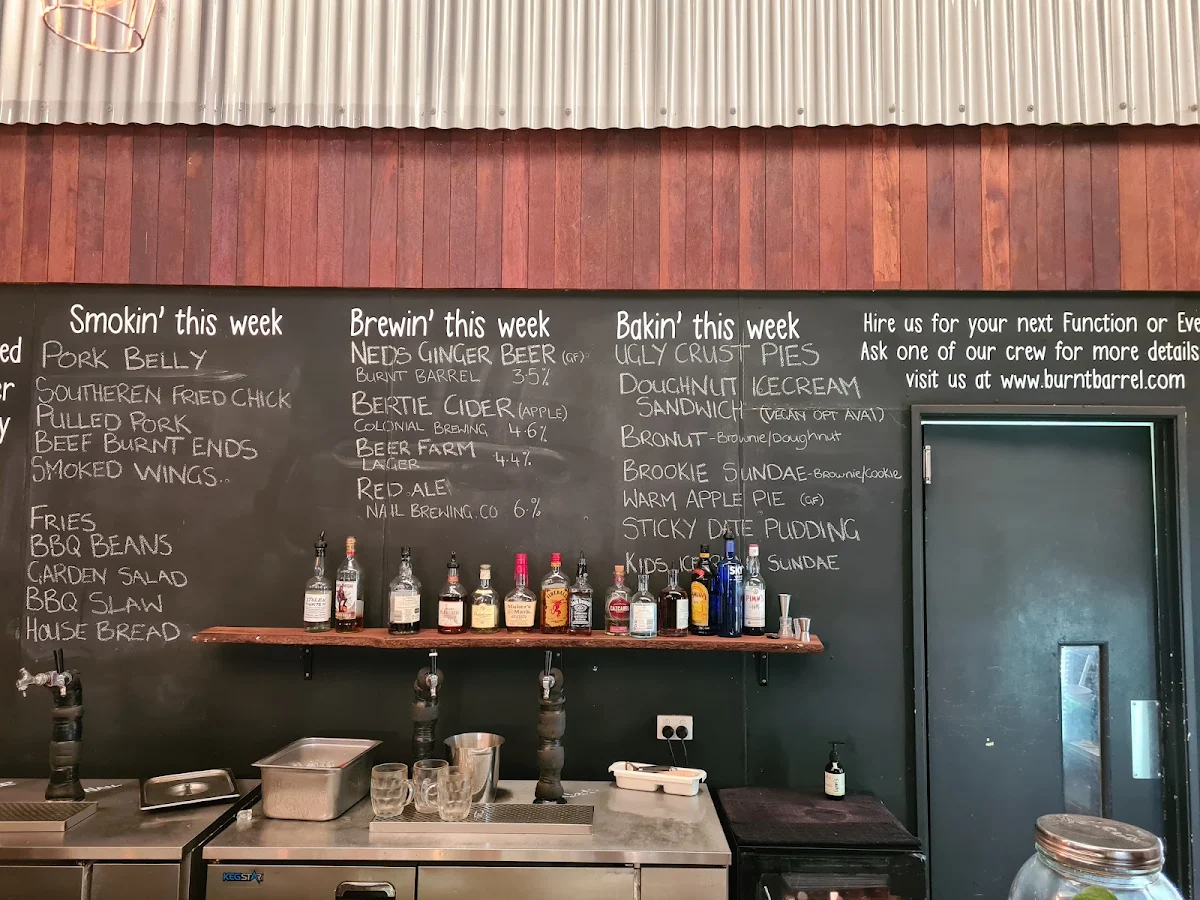 Smokin' this week
PORK BELLY
SOUTHEREN FRIED CHICK
PULLED PORK
BEEF BURNT ENDS
SMOKED WINGS..
FRIES
BBQ BEANS
GARDEN SALAD
BBQ SLAW
HOUSE BREAD
Brewin' this week
NEDS GINGER BEER (GF)
BURNT BARREL 3.5%
BERTIE CIDER (APPLE)
COLONIAL BREWING 4.6%
BEER FARM
LAGER 4.4%
RED ALE
NAIL BREWING.CO 6.%
Bakin' this week
UGLY CRUST PIES
DOUGHNUT ICECREAM
SANDWICH (VEGAN OPT AVAI)
BRONUT-Brownie/Doughnut
BROOKIE SUNDAE-Brownie/Cookie
WARM APPLE PIE (GF)
STICKY DATE PUDDING
KIDS SUNDAE
Hire us for your next Function or Eve
Ask one of our crew for more details
visit us at www.burntbarrel.com
ed
er
y
Maker's
Mark
FIREBALL
SKY
PIMM'S
KEGSTAR